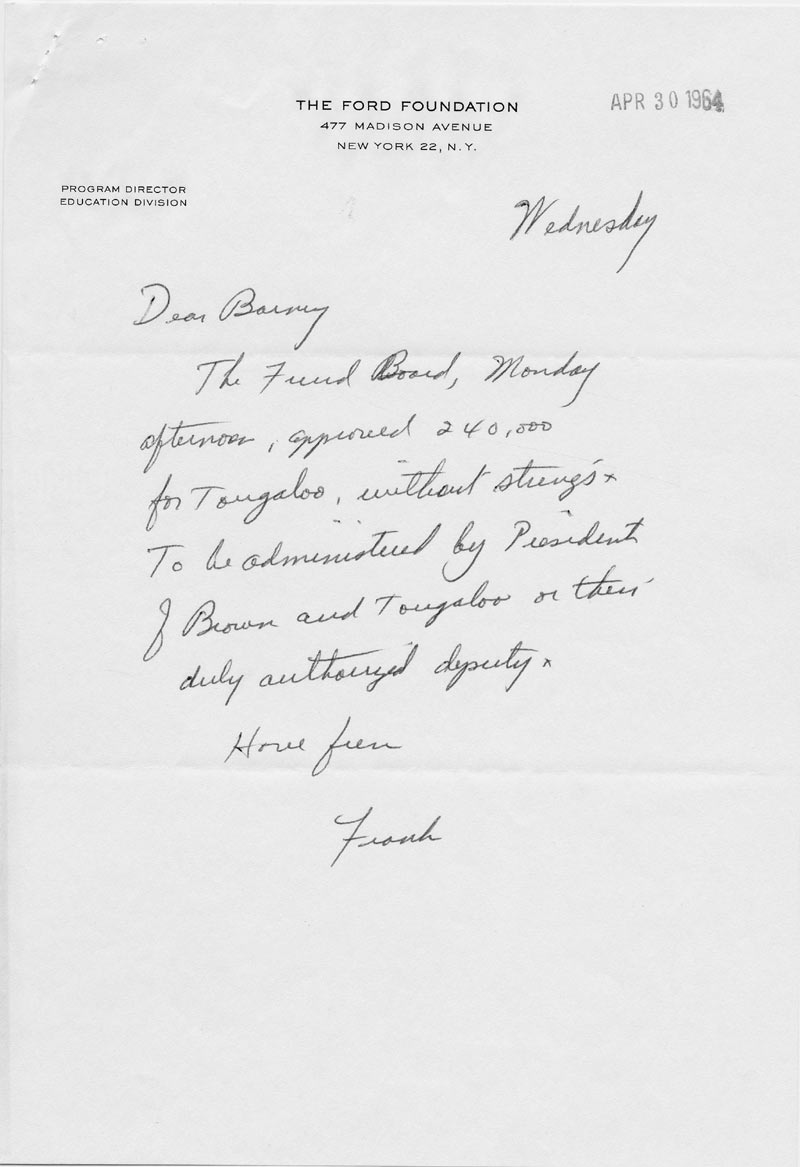 THE FORD FOUNDATION
477 MADISON AVENUE
NEW YORK 22, N.Y.
APR 30 1964
PROGRAM DIRECTOR
EDUCATION DIVISION
Wednesday
Dear Barney
The Fund Board, Monday
afternoon, approved 240,000
for Tougaloo, without strings x
To be administered by President
of Brown and Tougaloo or their
duly authorized deputy x
Have fun
Frank